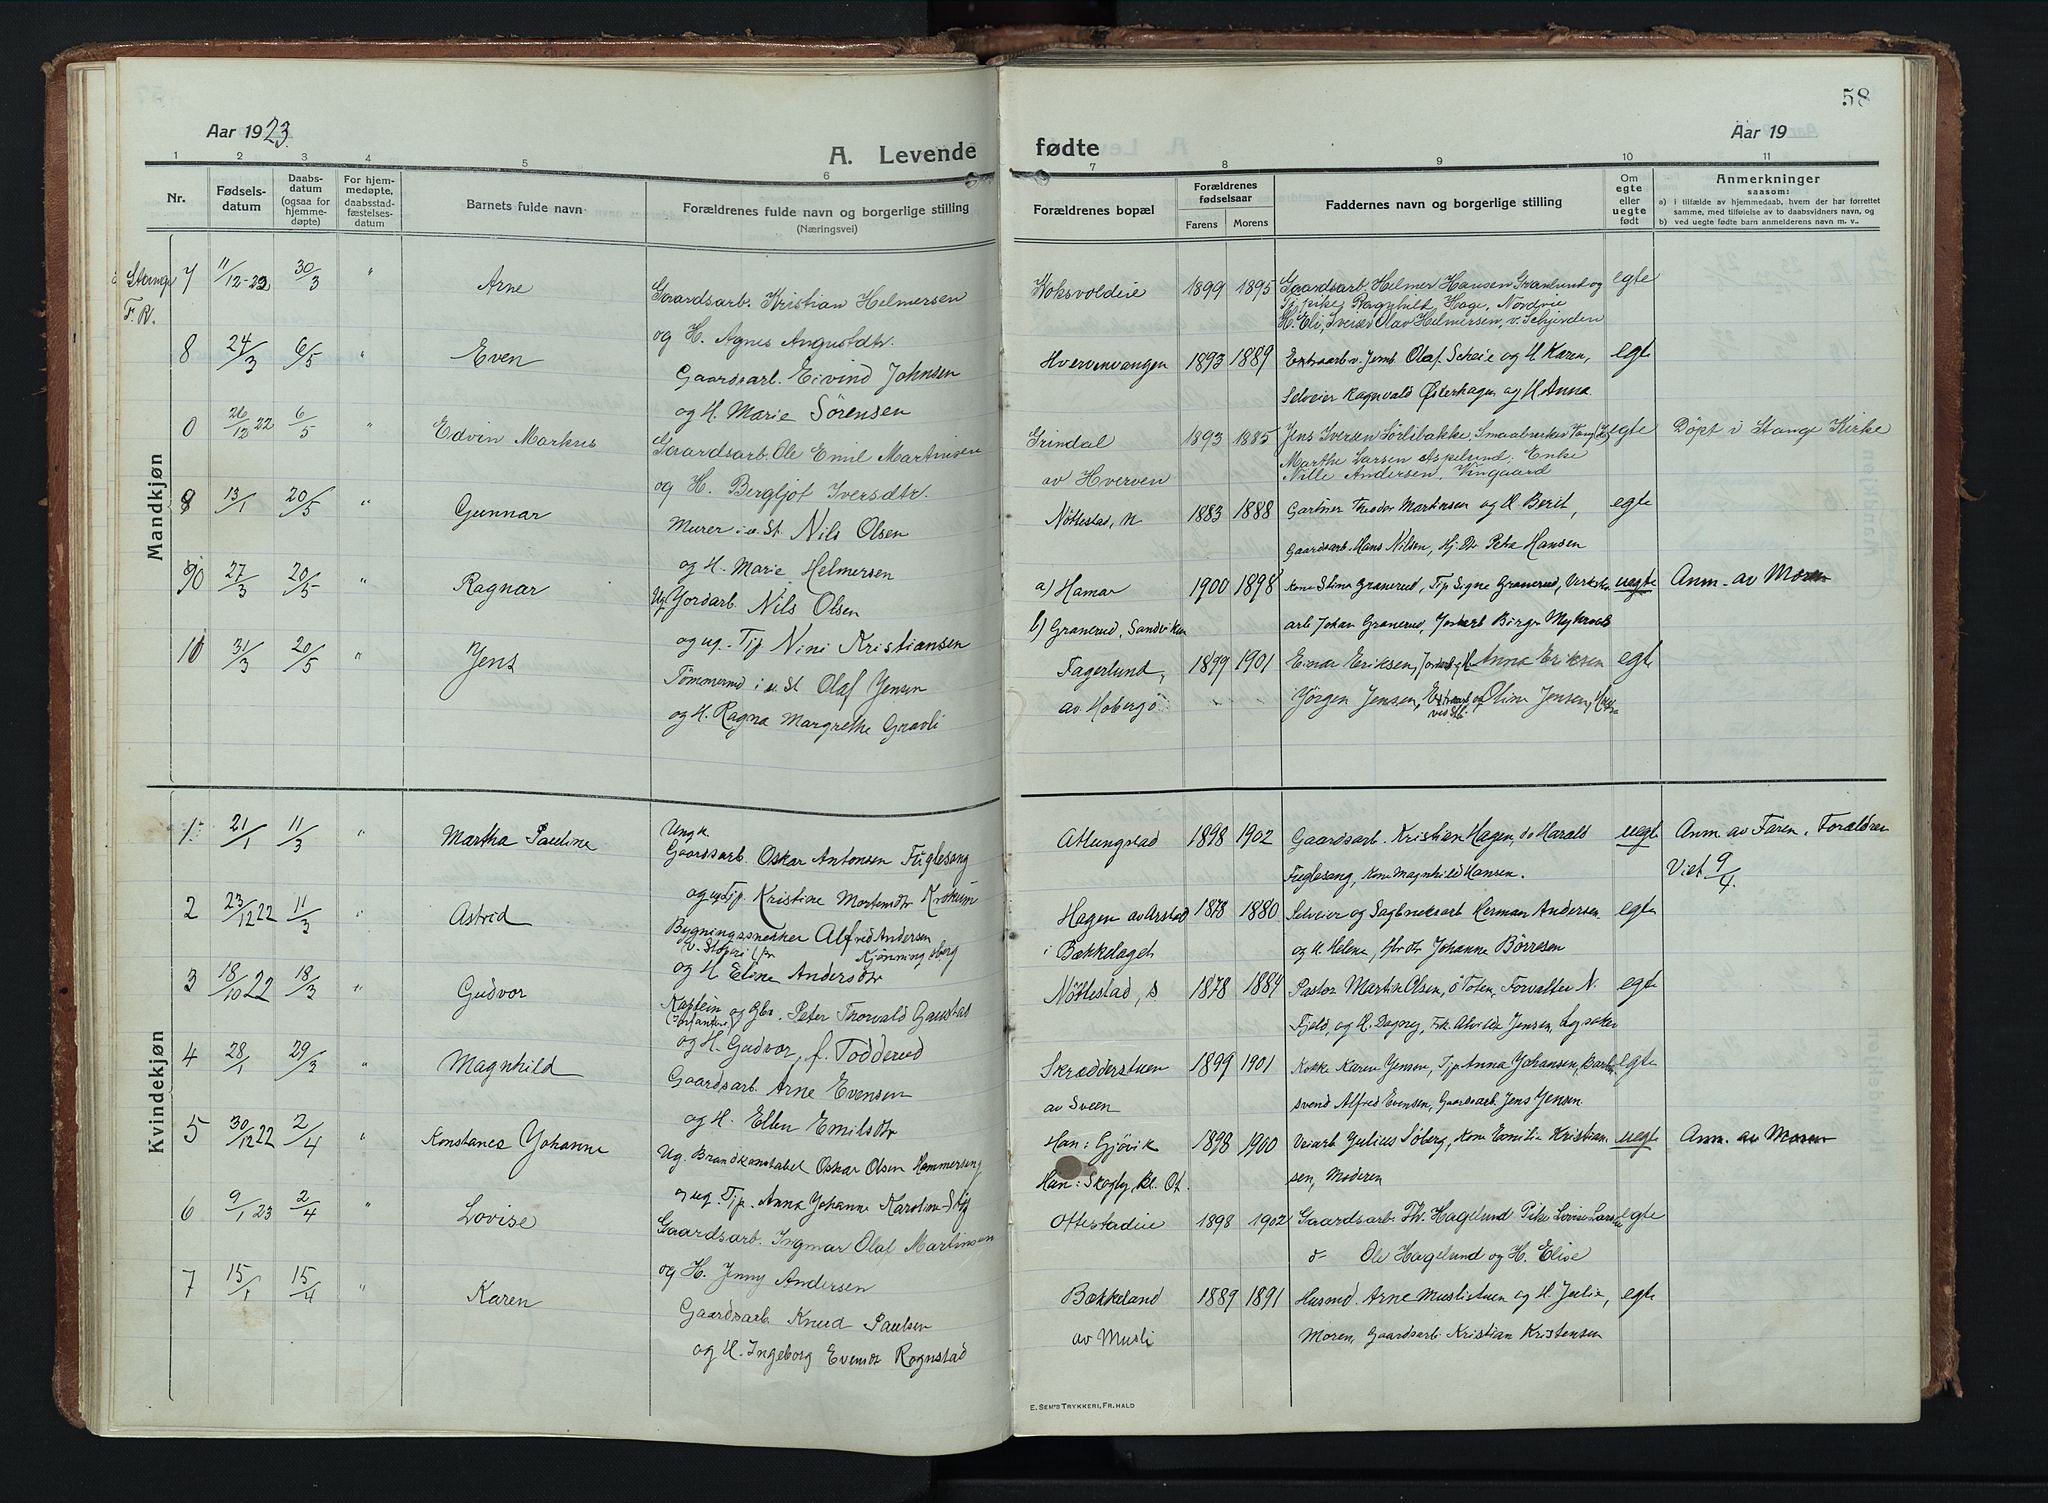 58
Aar 1923.
Aar 19
A. Levende
fødte
1 2 3 4 5 6
7 8 9 10 11
Nr.
Fødsels-
datum
Daabs-
datum
(ogsaa for
hjemme-
døpte)
For hjem-
medøpte,
daabsstad-
fæstelses-
datum
Barnets fulde navn
Forældrenes fulde navn og borgerlige stilling
(Næringsvei)
Forældrenes bopæl
Forældrenes
fødselsaar
Farens Morens
Faddernes navn og borgerlige stilling
Om
egte
eller
uegte
født
Anmerkninger
saasom:
a) i tilfælde av hjemmedaab, hvem der har forrettet
samme, med tilføielse av to daabsvidners navn, og
b) ved uegte fødte barn anmelderens navn m. v..
Mandkjøn
Stange
F. R.
7 11/12-22 30/3 " Arne
Gaardsarb. Kristian Helmersen
og H. Agnes Augustdtr.
Koksvoldeie 1899 1895
Gaardsarb. Helmer Hansen Granlund og
Tj. pike Ragnhild Hage, Nordvie
H. Eli, Iversø Olav Helmersen, v. Schjerden
egte
8 24/3 6/5 " Even
Gaardsarb. Eivind Johnsen
og H. Marie Sørensen
Hvervenvangen 1893 1889
Extraarb. v. Jernb. Olaf Scheie og H. Karen,
Selveier Ragnvald Østerhagen og H. Anna.
egte
0 26/12 22 6/5 " Edvin Markus
Gaardsarb. Ole Emil Martinsen
og H. Bergljot Iversdtr.
Grindal
av Hverven
1893 1885
Jens Iversen Sørlibakke, Smaabruker
Marthe Larsen Aspelund. Enke
Nille Andersen, Vingaard
egte
Døpt i Stange Kirke
9 13/1 20/5 " Gunnar
Murer i u. St. Nils Olsen
og H. Marie Helmersen
Nøttestad, N 1883 1888
Gartner Theodor Martinsen og H. Berit,
Gaardsarb. Hans Nilsen, Hj. Dtr. Petra Hansen
egte
90 27/3 20/5 " Ragnar
Ug. Jordarb. Nils Olsen
og ug. Tjp. Nini Kristiansen
a) Hamar
b) Granerud, Sandviken
1900 1898
Kone Stina Granerud, Tjp Signe Granerud, Verksted
arb Johan Granerud, Jordarb Birger Myhrvold
uegte
Anm. av Moren
10 31/3 20/5 " Jens
Tømmermd i u. St Olaf Jensen
og H. Ragna Margrethe Gravli
Fagerlund,
av Hobergø
1899 1901
Einar Eriksen, Jordarb og H Anna Eriksen
Jørgen Jensen, Extraarb
ved Stb. og Olina Jensen,
egte
Kvindekjøn
1. 21/1 11/3 " Martha Pauline
Ungk.
Gaardsarb. Oskar Antonsen Fuglesang
og ug Tjp. Kristine Mortensdtr Krokum
Atlungstad 1898 1902
Gaardsarb. Kristian Hagen, do Harald
Fuglesang, Kone Magnhild Hansen.
uegte
Anm. av Faren. Forældren
Viet 9/4.
2 23/12 22 11/3 " Astrid
Bygningssnekker Alfred Andersen
Kjønningsberg
og H Eline Andersdtr
Hagen av Arstad
i Bækkelaget
1878 1880
Selveier og Sagbruksarb Herman Andersen
og H. Helene, Gbr dtr Johanne Børresen
egte
3 18/10 22 18/3 " Gudvor
Kaptein og Gbr. Peter Thorvald Gaustad
(Infanteri)
og H. Gudvor, f. Todderud
Nøttestad, S 1878 1884
Pastor Martin Olsen, Ø Toten, Forvalter N.
Fjeld, og H. Dagny, Frk. Alvilde Jensen, Lysaker
egte
4 28/1 29/3 " Magnhild
Gaardsarb. Arne Evensen
og H. Ellen Emilsdtr
Skrædderstuen
av Sveen
1899 1901
Kokke Karen Jensen, Tjp. Anna Johansen, Barber
svend Alfred Evensen, Gaardsarb Jens Jensen
egte
5 30/12 22 2/4 " Konstanes Johanne
Ug. Brandkonstabel Oskar Olsen Hammerseng
og ug. Tjp. Anna Johanne Karoline Stig
Han: Gjøvik
Hun: Skogby, Kl. Ot.
1898 1900
Veiarb Julius Søberg, Kone Emilie Kristian
sen, Moderen
uegte
Anm. av Moren
6 9/1 23 2/4 " Lovise
Gaardsarb. Ingmar Olaf Martinsen
og H. Jenny Andersen
Ottestadeie 1898 1902
Gaardsarb. Th. Hagelund Pike Lovise Larsen
do Ole Hagelund og H. Elise
egte
7 15/1 15/4 " Karen
Gaardsarb. Knud Paulsen
og H. Ingeborg Evensdtr Rognstad
Bækkeland
av Musli
1889 1891
Husmd. Arne Muslistuen og H. Julie,
Moren, Gaardsarb. Kristian Kristensen
egte
E. SEM'S TRYKKERI, FR.HALD